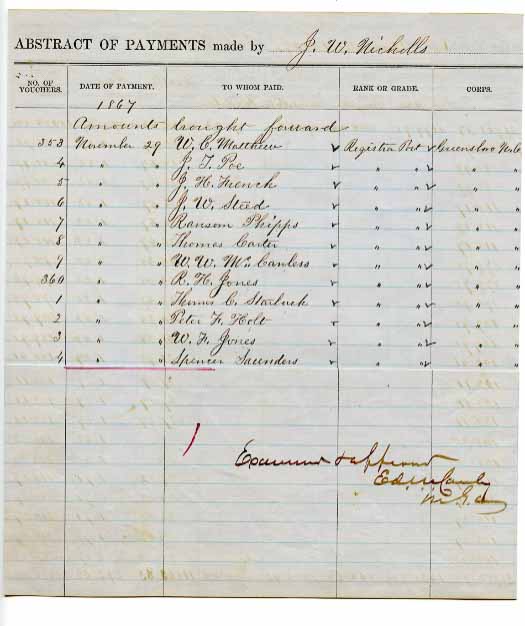 ABSTRACT OF PAYMENTS made by J. W. Nicholls
NO. OF VOUCHERS. DATE OF PAYMENT. TO WHOM PAID. RANK OR GRADE. CORPS.
1867
Amounts bought forward
353 November 29 W. C. Matthew ✓ Register Post ✓ Greensboro No. Ca
4 " " J. T. Poe ✓ " " ✓ " "
5 " " J. H. French ✓ " " ✓ " "
6 " " J. W. Steed ✓ " " ✓ " "
7 " " Ransom Phipps ✓ " " ✓ " "
8 " " Thomas Carter ✓ " " ✓ " "
9 " " W. W. McCanless ✓ " " ✓ " "
360 " " R. H. Jones ✓ " " ✓ " "
1 " " Thomas C. Starbuck ✓ " " ✓ " "
2 " " Peter F. Holt ✓ " " ✓ " "
3 " " W. F. Jones ✓ " " ✓ " "
4 " " Spencer Saunders ✓ " " ✓ " "
Examined &